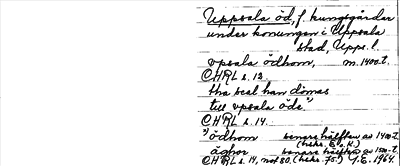 Uppsala öd, f. kungsgårdar
under konungen i Uppsala
stad, Uppl.
vpsala ödhom, m. 1400-t.
CHRL s. 13
tha scal han dömas
till vpsala öde"
CHRL s. 14
"ödhom senare hälften av 1400-t.
(hskr. E o. K.)
äghor senare hälften av 1500-t.
CHRL s. 14, not 80. (hskr. 75.) I.E. 1964.